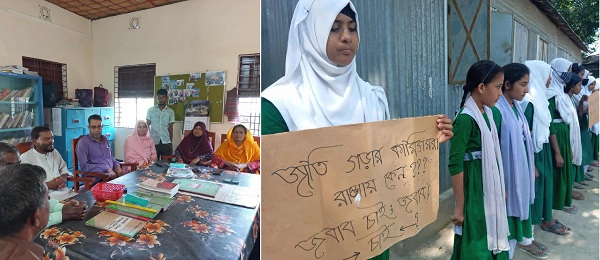 জাতি গড়ার কারিগররা
রাস্তায় কেন???
জবাব চাই! জবাব
চাই